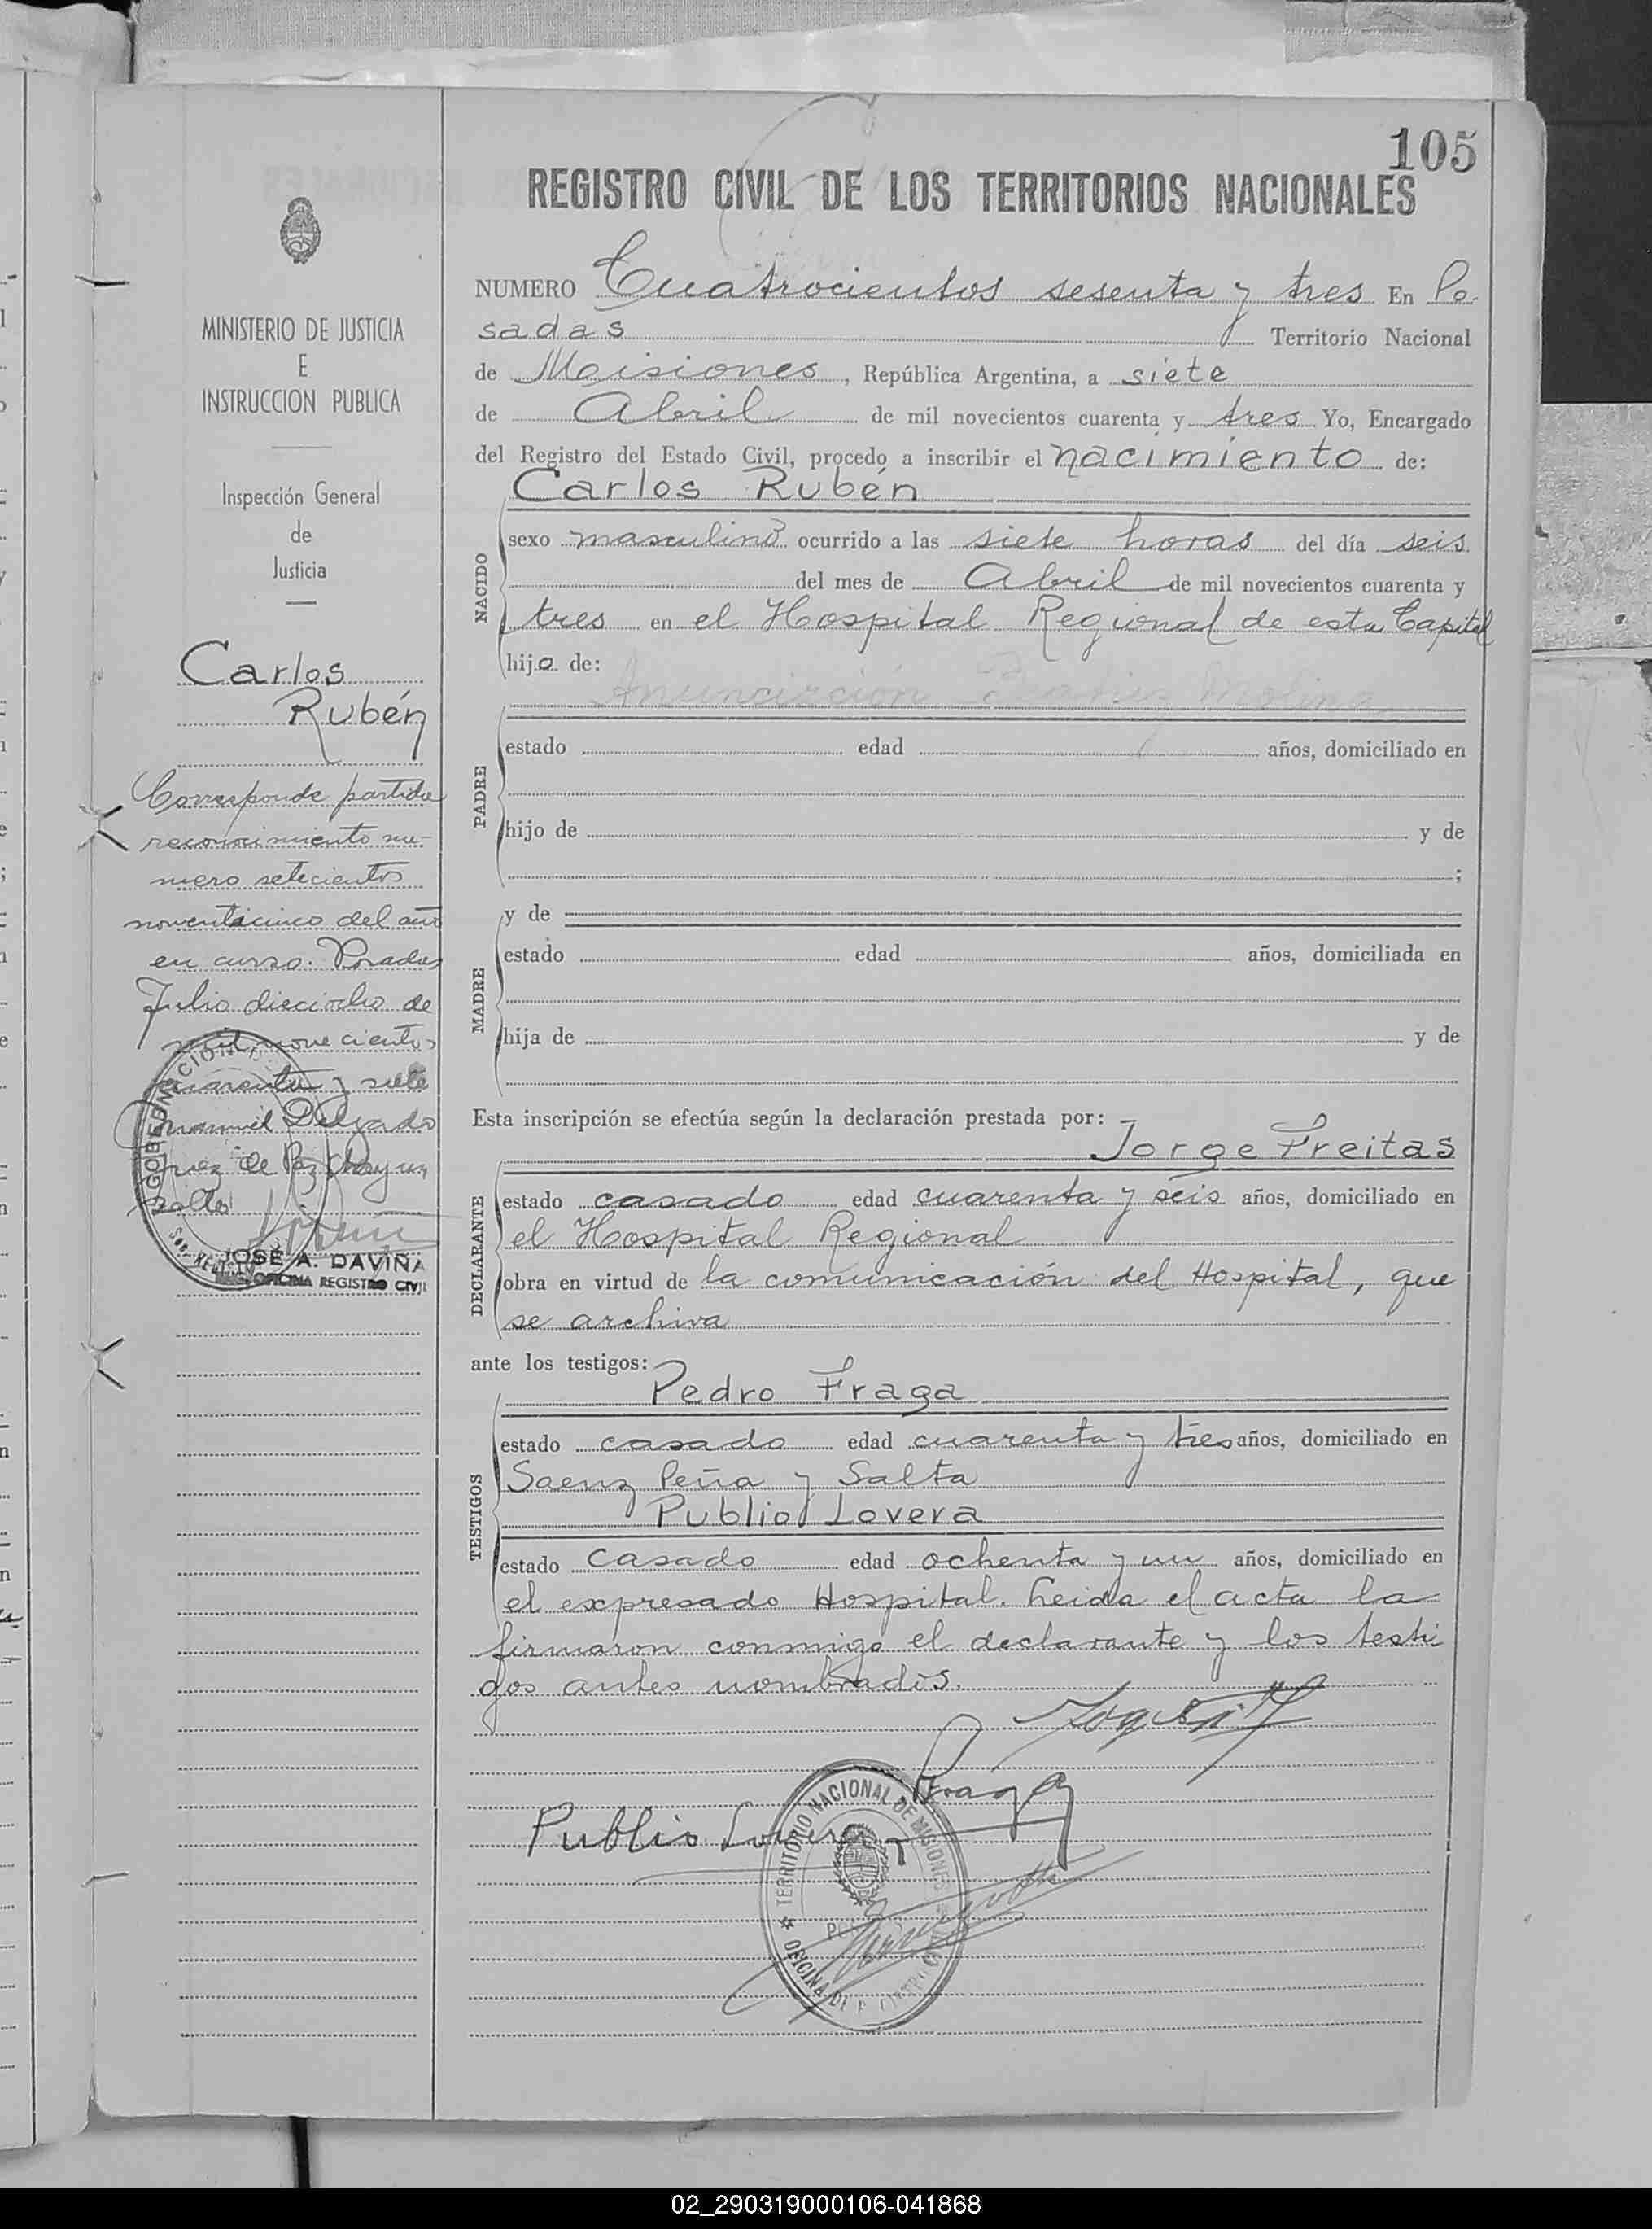 105
REGISTRO CIVIL DE LOS TERRITORIOS NACIONALES
MINISTERIO DE JUSTICIA
E
INSTRUCCION PUBLICA
Inspección General
de
Justicia
Carlos
Rubén
Corresponde partida
reconocimiento nu-
mero setecientos
noventicinco del año
en curso. Posadas
Julio dieciocho de
mil novecientos
cuarenta y siete
Manuel Delgado
Juez de Paz
JOSÉ A. DAVIÑA
OFICINA REGISTRO CIVIL
NUMERO Cuatrocientos sesenta y tres En Po-
sadas Territorio Nacional
de Misiones, República Argentina, a siete
de Abril de mil novecientos cuarenta y tres Yo, Encargado
del Registro del Estado Civil, procedo a inscribir el nacimiento de:
Carlos Rubén
NACIDO
sexo masculino ocurrido a las siete horas del día seis
del mes de Abril de mil novecientos cuarenta y
tres en el Hospital Regional de esta Capital
hijo de:
Anunciación Molina
PADRE
estado edad años, domiciliado en
hijo de y de
;
y de
MADRE
estado edad años, domiciliada en
hija de y de
Esta inscripción se efectúa según la declaración prestada por:
Jorge Freitas
DECLARANTE
estado casado edad cuarenta y seis años, domiciliado en
el Hospital Regional
obra en virtud de la comunicación del Hospital, que
se archiva
ante los testigos:
Pedro Fraga
TESTIGOS
estado casado edad cuarenta y tres años, domiciliado en
Saenz Peña y Salta
Publio Lovera
estado casado edad ochenta y un años, domiciliado en
el expresado Hospital. Leida el acta la
firmaron conmigo el declarante y los testi
gos antes nombrados.
Fraga
Publio Lovera
TERRITORIO NACIONAL DE MISIONES
OFICINA DE
02_290319000106-041868